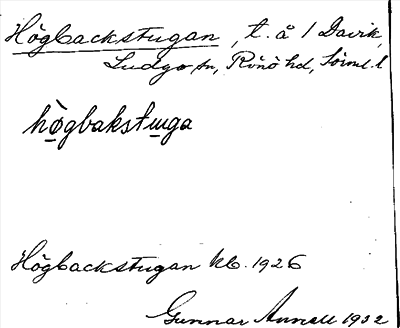 Högbackstugan, t. å 1 Davik,
Ludgo sn, Rönö hd, Söml. l
högbakstuga
Högbackstugan kb. 1926
Gunnar Annell 1932